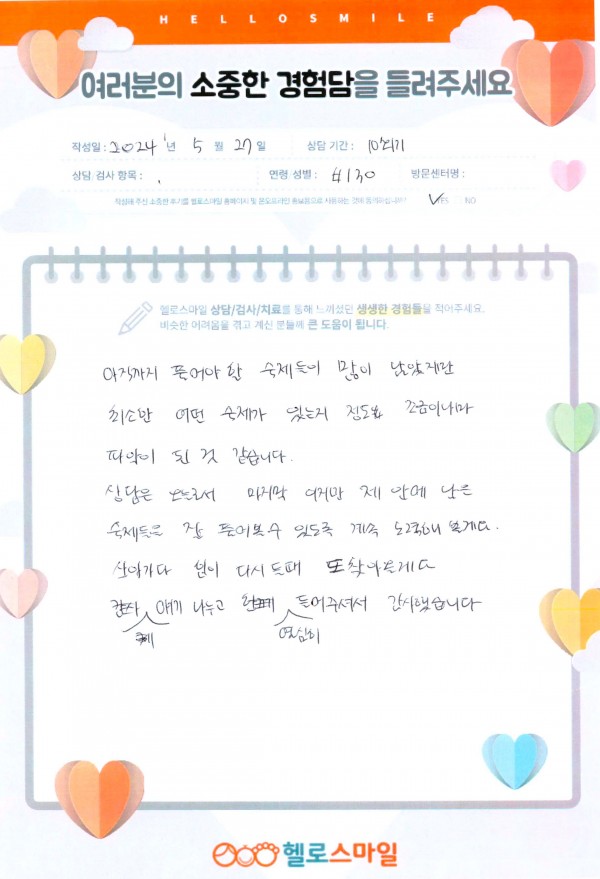 HELLOSMILE
여러분의 소중한 경험담을 들려주세요
작성일 : 2024 년 5 월 27 일 상담 기간 : 10회기
상담/검사 항목 : . 연령/성별 : 방문센터명 :
작성해 주신 소중한 후기를 헬로스마일 홈페이지 및 온오프라인 홍보용으로 사용하는 것에 동의하십니까? YES NO
헬로스마일 상담/검사/치료를 통해 느끼셨던 생생한 경험들을 적어주세요.
비슷한 어려움을 겪고 계신 분들께 큰 도움이 됩니다.
아직까지 풀어야 할 숙제들이 많이 남았지만
최소한 어떤 숙제가 있는지 정도로 조금이나마
파악이 된 것 같습니다.
상담은 오늘로서 마지막 이지만 제 안에 남은
숙제들을 잘 풀어볼 수 있도록 계속 노력해 볼게요.
살아가다 힘이 다시 들때 또 찾아올게요
얘기 나누고 들어주셔서 감사했습니다
열심히
헬로스마일